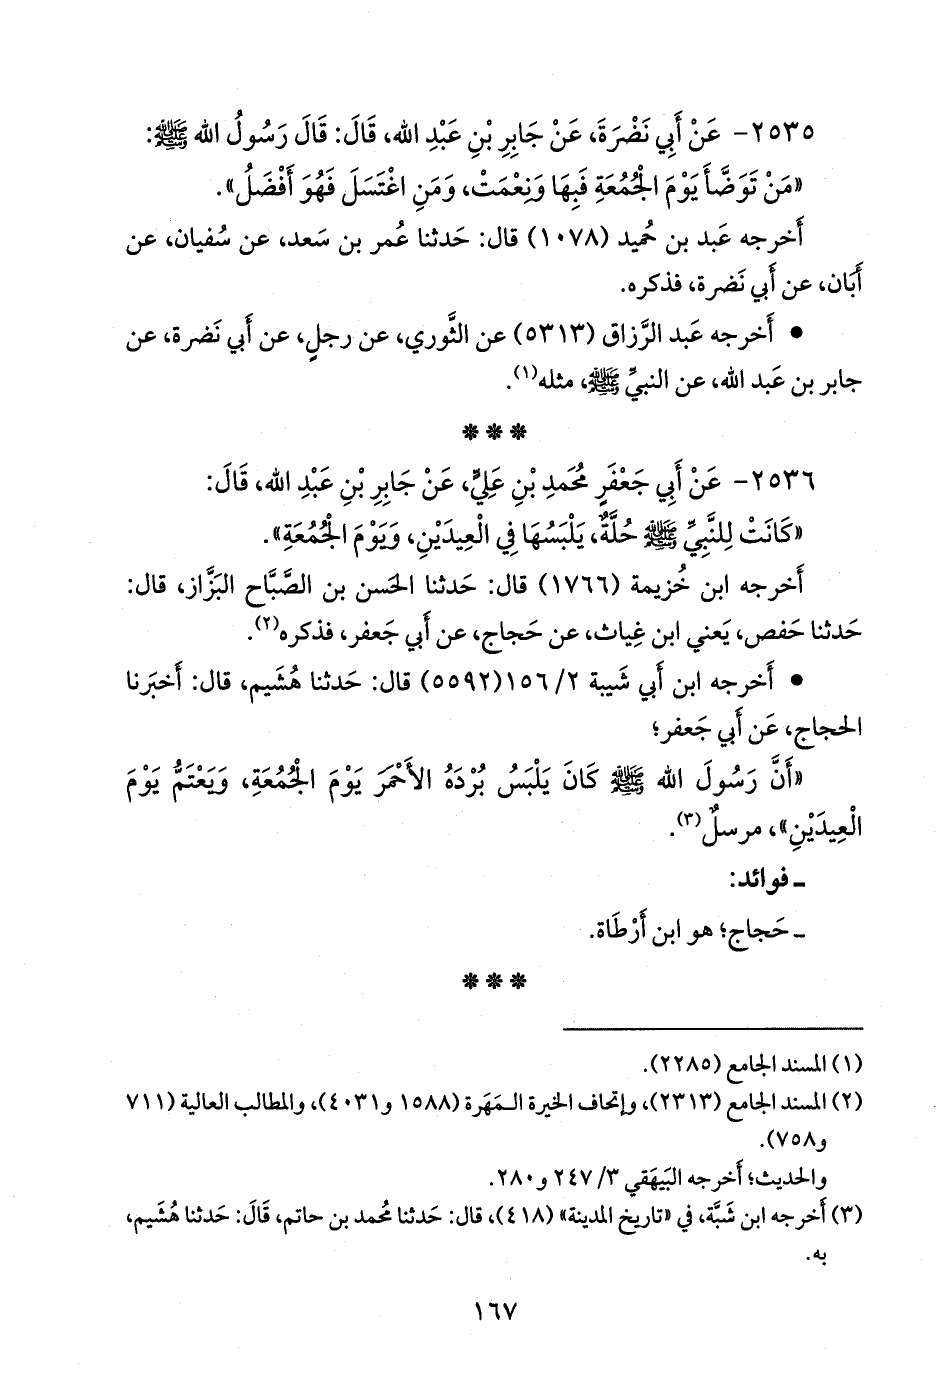 ٢٥٣٥- عَنْ أَبِي نَضْرَةَ، عَنْ جَابِرِ بْنِ عَبْدِ الله، قَالَ: قَالَ رَسُولُ الله ﷺ:
«مَنْ تَوَضَّأَ يَوْمَ الْجُمُعَةِ فَبِهَا وَنِعْمَتْ، وَمَنِ اغْتَسَلَ فَهُوَ أَفْضَلُ».
أَخرجه عَبد بن حُميد (١٠٧٨) قال: حَدثنا عُمر بن سَعد، عن سُفيان، عن
أَبَان، عن أَبي نَضرة، فذكره.
• أَخرجه عَبد الرَّزاق (٥٣١٣) عن الثَّوري، عن رجلٍ، عن أَبي نَضرة، عن
جابر بن عَبد الله، عن النبيِّ ﷺ، مثله(١).
* * *
٢٥٣٦- عَنْ أَبِي جَعْفَرٍ مُحَمَدِ بْنِ عَلِيٍّ، عَنْ جَابِرِ بْنِ عَبْدِ الله، قَالَ:
«كَانَتْ لِلنَّبِيِّ ﷺ حُلَّةٌ، يَلْبَسُهَا فِي الْعِيدَيْنِ، وَيَوْمَ الْجُمُعَةِ».
أَخرجه ابن خُزيمة (١٧٦٦) قال: حَدثنا الحَسن بن الصَّبَّاح البَزَّاز، قال:
حَدثنا حَفص، يَعني ابن غِياث، عن حَجاج، عن أَبي جَعفر، فذكره(٢).
• أَخرجه ابن أَبي شَيبة ٢/ ١٥٦(٥٥٩٢) قال: حَدثنا هُشَيم، قال: أَخبَرنا
الحجاج، عَن أَبي جَعفر؛
«أَنَّ رَسُولَ الله ﷺ كَانَ يَلْبَسُ بُرْدَهُ الأَحْمَرَ يَوْمَ الْجُمُعَةِ، وَيَعْتَمُّ يَوْمَ
الْعِيدَيْنِ»، مرسلٌ(٣).
ـ فوائد:
ـ حَجاج؛ هو ابن أَرْطَاة.
* * *
(١) المسند الجامع (٢٢٨٥).
(٢) المسند الجامع (٢٣١٣)، وإتحاف الخيرة الـمَهَرة (١٥٨٨ و٤٠٣١)، والمطالب العالية (٧١١
و٧٥٨).
والحديث؛ أَخرجه البَيهَقي ٣/ ٢٤٧ و٢٨٠.
(٣) أَخرجه ابن شَبَّة، في «تاريخ المدينة» (٤١٨)، قال: حَدثنا مُحمد بن حاتم، قَالَ: حَدثنا هُشَيم،
به.
١٦٧